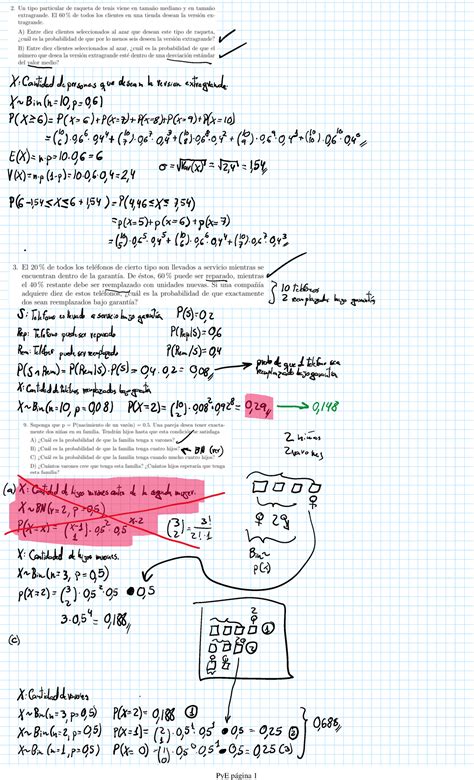 2. Un tipo particular de raqueta de tenis viene en tamaño mediano y en tamaño
extragrande. El 60 % de todos los clientes en una tienda desean la versión ex-
tragrande.
A) Entre diez clientes seleccionados al azar que desean este tipo de raqueta,
¿cuál es la probabilidad de que por lo menos seis deseen la versión extragrande?
B) Entre diez clientes seleccionados al azar, ¿cuál es la probabilidad de que el
número que desea la versión extragrande esté dentro de una desviación estándar
del valor medio?
X: Cantidad de personas que desean la version extragrande
X~Bin(n=10, p=0,6)
P(X≥6) = P(X=6)+P(X=7)+P(X=8)+P(X=9)+P(X=10)
E(X) = n·p = 10·0,6 = 6
V(X)=n·p·(1-p) = 10·0,6·0,4 = 2,4
σ = √Var(X) = √2,4 = 1,54
P(6-1,54≤X≤6+1,54) = P(4,46≤X≤7,54)
= p(X=5)+p(X=6)+p(X=7)
3. El 20 % de todos los teléfonos de cierto tipo son llevados a servicio mientras se
encuentran dentro de la garantía. De éstos, 60 % puede ser reparado, mientras
el 40 % restante debe ser reemplazado con unidades nuevas. Si una compañía
adquiere diez de estos teléfonos, ¿cuál es la probabilidad de que exactamente
dos sean reemplazados bajo garantía?
10 teléfonos
2 reemplazados bajo garantía
S: Telefono es llevado a servicio bajo garantia P(S)=0,2
Rep: Teléfono puede ser reparado P(Rep/S)=0,6
Rem: Teléfono puede ser reemplazado P(Rem/S)=0,4
P(S∩Rem) = P(Rem/S)·P(S) = 0,4·0,2 = 0,08
proba de que 1 telefono sea
reemplazado bajo garantia
X: Cantidad de telefonos reemplazados bajo garantia
X~Bin(n=10, p=0,08) P(X=2) = (10 2)·0,08²·0,92⁸ = 0,29 → 0,148
9. Suponga que p = P(nacimiento de un varón) = 0.5. Una pareja desea tener exacta-
mente dos niñas en su familia. Tendrán hijos hasta que esta condición se satisfaga.
A) ¿Cuál es la probabilidad de que la familia tenga x varones?
B) ¿Cuál es la probabilidad de que la familia tenga cuatro hijos?
C) ¿Cuál es la probabilidad de que la familia tenga cuando mucho cuatro hijos?
D) ¿Cuántos varones cree que tenga esta familia? ¿Cuántos hijos esperaría que tenga
esta familia?
BN
2 niñas
2 varones
(a) X: Cantidad de hijos
X~BN(r=2, p=0,5)
(3 2) = 3! / 2!·1
♀ 2♀
Bin~
p(x)
X: Cantidad de hijos
X~Bin(n=3, p=0,5)
p(X=2) = (3 2)·0,5²·0,5 ● 0,5
3·0,5⁴ = 0,188
(c)
X: Cantidad de varones
X~Bin(n=3, p=0,5) P(X=2) = 0,188 ①
X~Bin(n=2, p=0,5) P(X=1) = (2 1)·0,5¹·0,5¹ ● 0,5 = 0,25 ②
X~Bin(n=1, p=0,5) P(X=0) = (1 0)·0,5⁰·0,5¹ ● 0,5 = 0,25 ③
0,688
PyE página 1